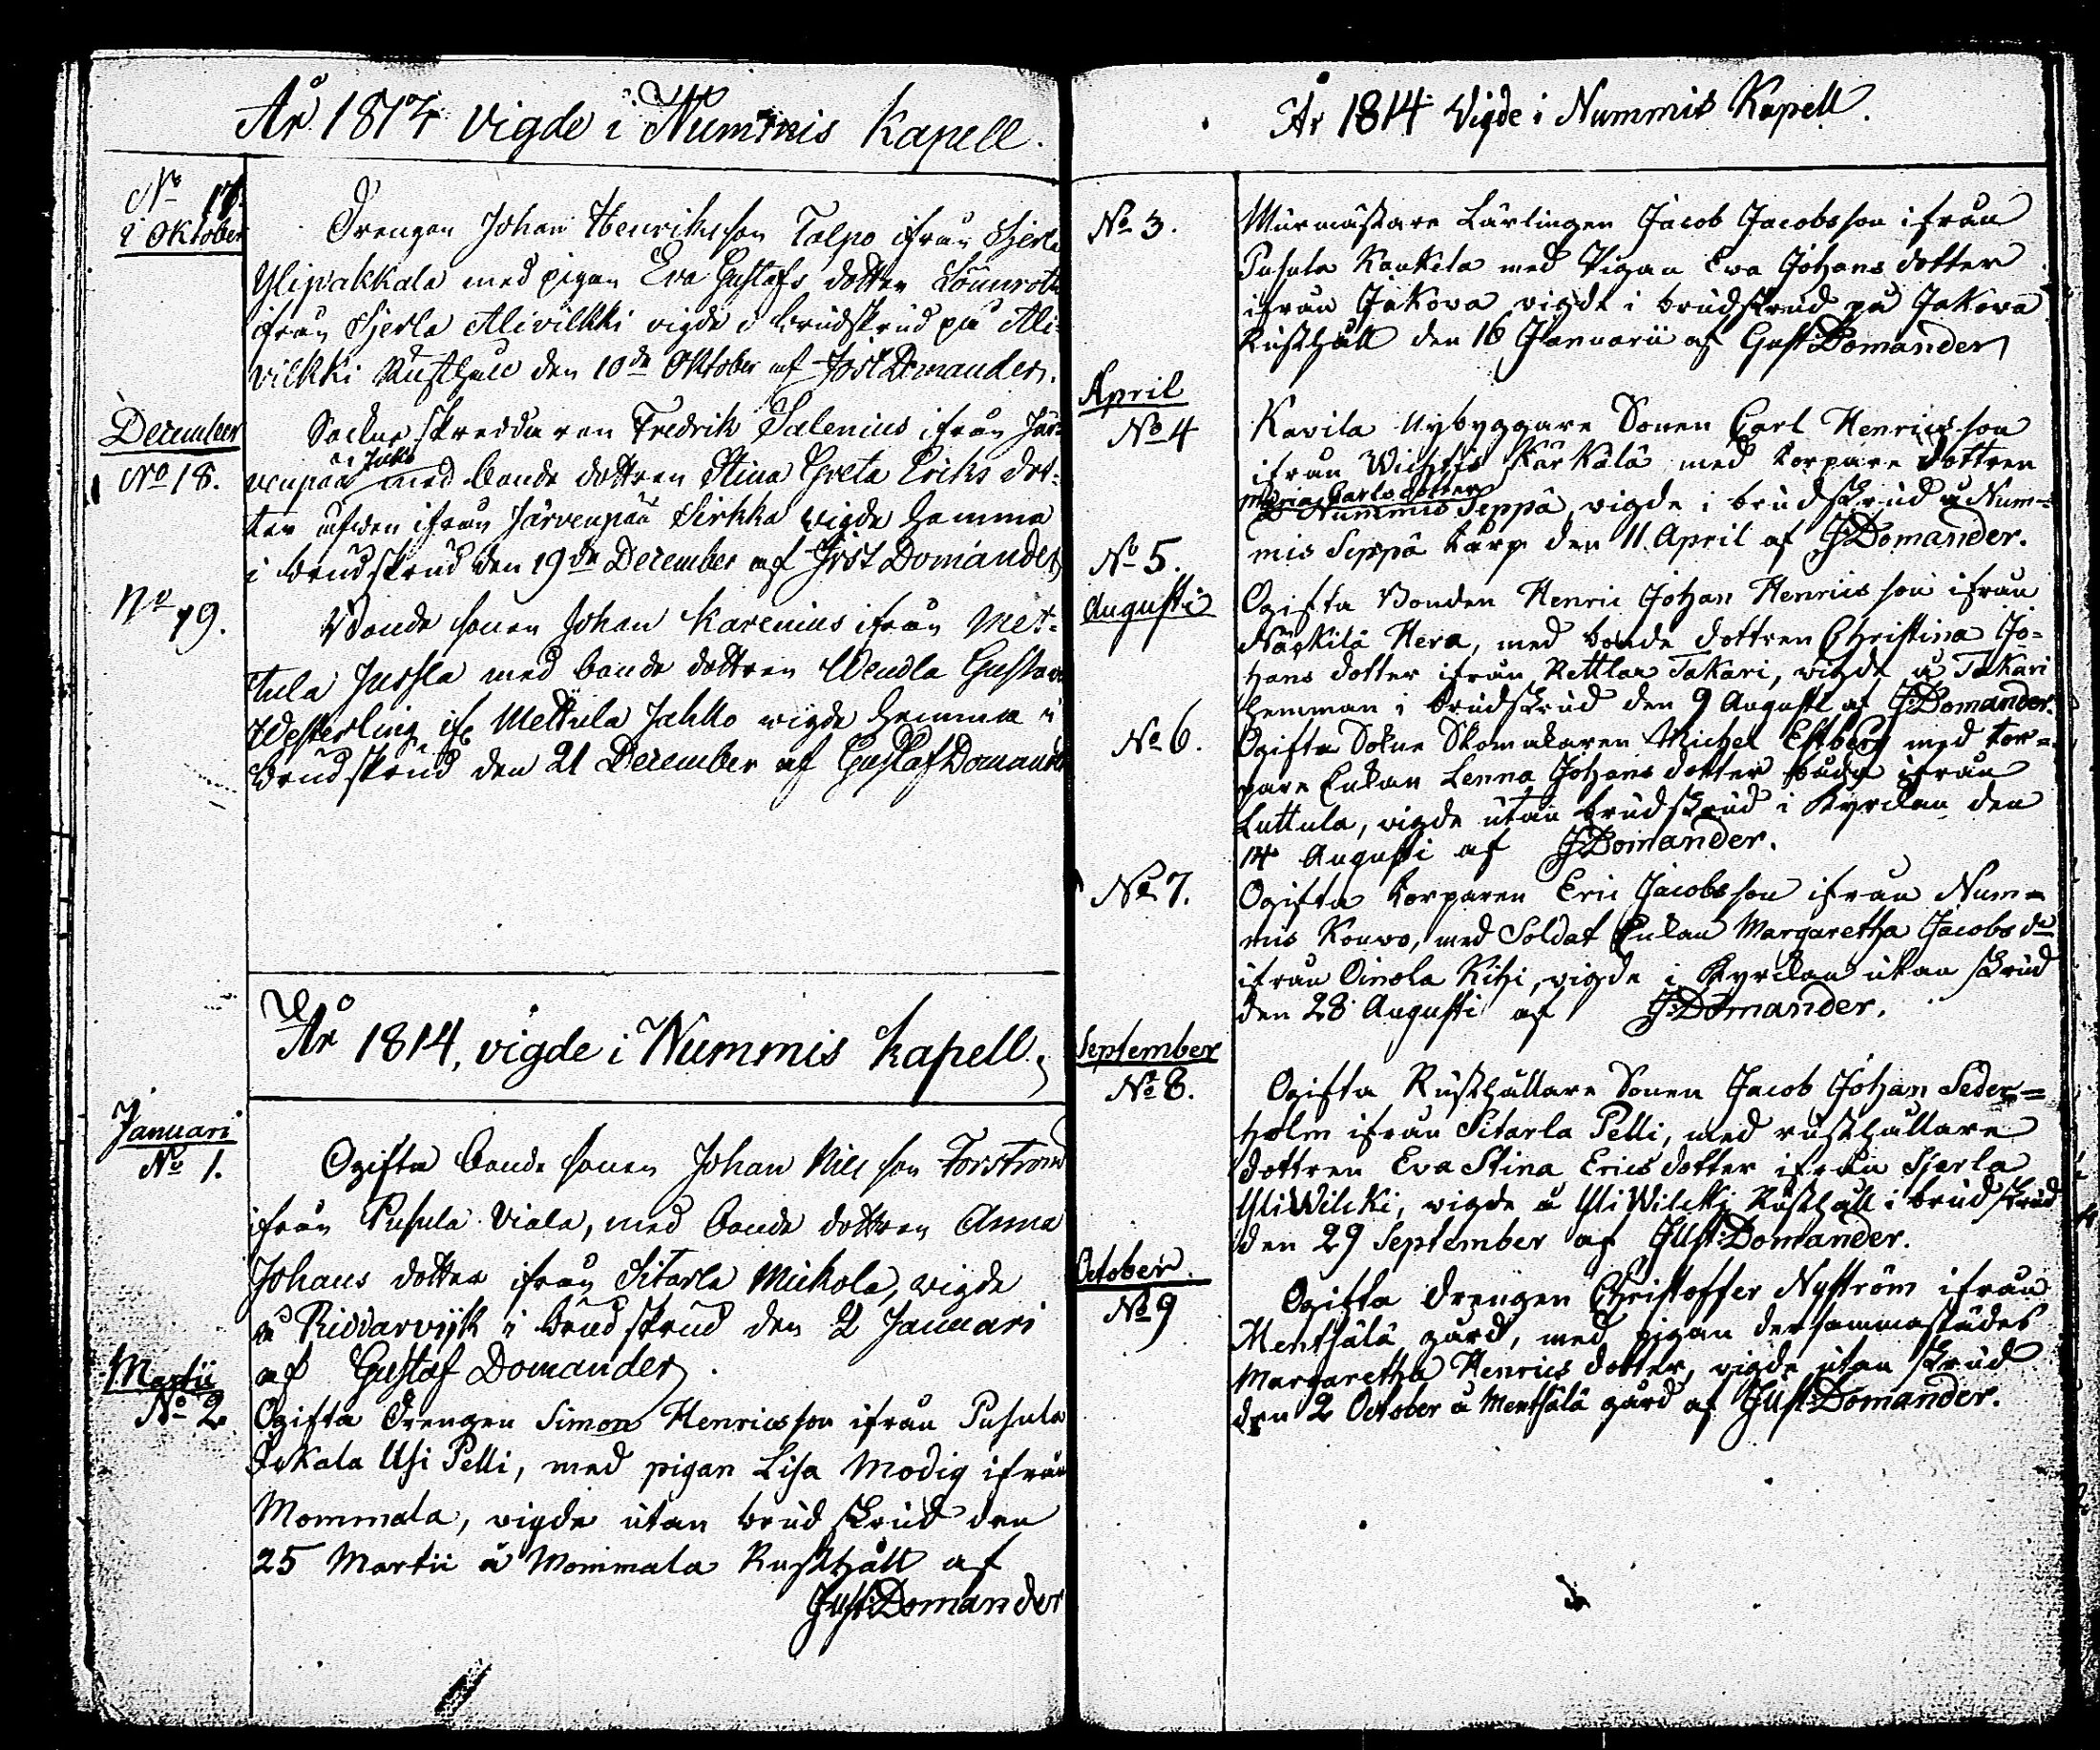 År 1813 vigde i Nummis Kapell.
No 17.
i Oktober
Drengen Johan Henriksson Talpo ifrån Hjerla
Ylipakkala med pigan Eva Gustafs dotter Lönnroth
ifrån Hjerla Alivilkki vigde i brudskrud på Ali-
vilkki Rusthåll den 10de Oktober af Gost Domander.
December
No 18.
Sockne skreddaren Fredrik Salenius ifrån Jär-
venpää med bonde dottren Stina Greta Eriks dot-
ter äfven ifrån Järvenpää Sirkka vigde hemma
i brudskrud den 19de December af Gost Domander
No 19.
Bonde sonen Johan Karenius ifrån Met-
tula Jussla med bonde dottren Wendla Gustava
Westerling if. Mettula Jakko vigde hemma i
brudskrud den 21 December af Gustaf Domander
År 1814, vigde i Nummis Kapell.
Januari
No 1.
Ogifta bonde sonen Johan Nilsson Forstrom
ifrån Pusula Viala, med bonde dottren Anna
Johans dotter ifrån Sitarla Mickola, vigde
å Riddarvijk i brudskrud den 2 Januari
af Gustaf Domander.
Martii
No 2.
Ogifta Drengen Simon Henricsson ifrån Pusula
Ikkala Usi Pelli, med pigan Lisa Modig ifrån
Mommala, vigde utan brudskrud den
25 Martii å Mommala Rusthåll af
Gust: Domander
År 1814 Vigde i Nummis Kapell.
No 3.
Murmästare Lärlingen Jacob Jacobsson ifrån
Pusula Kaukela med Pigan Eva Johans dotter
ifrån Jakova vigde i brudskrud på Jakova
Rusthåll den 16 Januarii af Gust: Domander
April
No 4
Kavila Nybyggare Sonen Carl Henricsson
ifrån Wichtis Kärkälä med torpare dottren
Maria Carlsdotter
Nummis Seppä, vigde i brudskrud å Num-
mis Seppä torp den 11 April af G Domander.
No 5.
Augusti
Ogifta Bonden Henric Johan Henricsson ifrån
Näkkilä Hera, med bonde dottren Christina Jo-
hans dotter ifrån Rettlax Takari, vigde å Takari
hemman i brudskrud den 9 Augusti af G: Domander.
No 6.
Ogifta Sokne Skomakaren Michel Ekberg med tor-
pare Enkan Lenna Johans dotter båda ifrån
Luttula, vigde utan brudskrud i Kyrckan den
14 Augusti af G Domander.
No 7.
Ogifta torparen Eric Jacobsson ifrån Num-
mis Kouvo, med Soldat Enkan Margaretha Jacobs dr
ifrån Oinola Rihi, vigde i Kyrckan utan skrud
den 28 Augusti af G: Domander.
September
No 8.
Ogifta Rusthållare Sonen Jacob Johan Seder-
holm ifrån Sitarla Pelli, med rusthållare
dottren Eva Stina Erics dotter ifrån Hjerla
Yli Wilcki, vigde å Yli Wilcki Rusthåll i brudskrud
den 29 September af Gust: Domander.
October.
No 9
Ogifta Drengen Christoffer Nyström ifrån
Menthälä gård, med pigan dersammastädes
Margaretha Henrics dotter, vigde utan skrud
den 2 October å Menthälä gård af Gust: Domander.